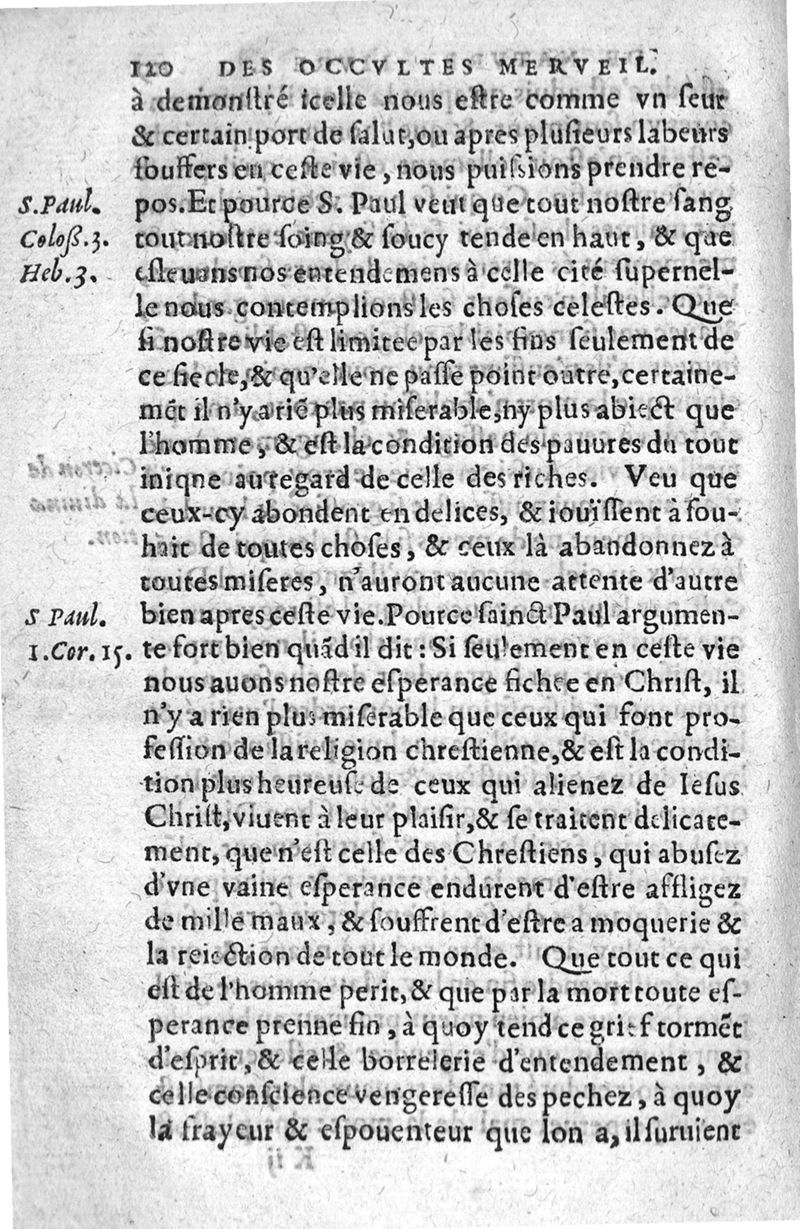 120 DES OCCVLTES MERVEIL.
à demonſtré icelle nous eſtre comme vn ſeur
& certain port de ſalut, ou apres pluſieurs labeurs
ſouffers en ceſte vie, nous puiſsions prendre re-
S. Paul. pos. Et pource S. Paul veut que tout noſtre ſang
Coloß. 3. tout noſtre ſoing & ſoucy tende en haut, & que
Heb. 3. eſleuans nos entendemens à celle cité ſupernel-
le nous contemplions les choſes celeſtes. Que
ſi noſtre vie eſt limitee par les fins ſeulement de
ce ſiecle, & qu'elle ne paſſe point outre, certaine-
mẽt il n'y a riẽ plus miſerable, ny plus abiect que
l'homme, & eſt la condition des pauures du tout
iniqne au regard de celle des riches. Veu que
ceux-cy abondent en delices, & iouïſſent à ſou-
hait de toutes choſes, & ceux là abandonnez à
toutes miſeres, n'auront aucune attente d'autre
S Paul. bien apres ceſte vie. Pource ſainct Paul argumen-
1. Cor. 15. te fort bien quãd il dit : Si ſeulement en ceſte vie
nous auons noſtre eſperance fichee en Chriſt, il
n'y a rien plus miſerable que ceux qui font pro-
feſſion de la religion chreſtienne, & eſt la condi-
tion plus heureuſe de ceux qui alienez de Ieſus
Chriſt, viuent à leur plaiſir, & ſe traitent delicate-
ment, que n'eſt celle des Chreſtiens, qui abuſez
d'vne vaine eſperance endurent d'eſtre affligez
de mille maux, & ſouffrent d'eſtre a moquerie &
la reiection de tout le monde. Que tout ce qui
eſt de l'homme perit, & que par la mort toute eſ-
perance prenne fin, à quoy tend ce grief tormẽt
d'eſprit, & celle borrelerie d'entendement, &
celle conſcience vengereſſe des pechez, à quoy
la frayeur & eſpouenteur que lon a, il ſuruient